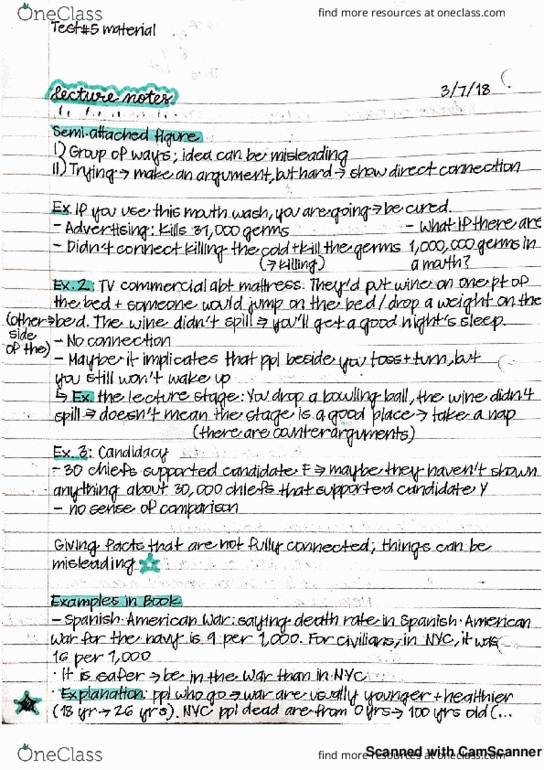 OneClass
find more resources at oneclass.com
Test#5 material
lecture notes
3/7/18
Semi-attached figure
I) Group of ways; idea can be misleading
II) Trying → make an argument, but hard → show direct connection
Ex. If you use this mouth wash, you are going → be cured.
- Advertising: Kills 31,000 germs
- What if there are
- Didn't connect killing the cold + kill the germs
1,000,000 germs in
(→ killing)
a mouth?
Ex. 2: TV commercial abt mattress. They'd put wine on one pt of
the bed + someone would jump on the bed / drop a weight on the
(other → bed. The wine didn't spill → you'll get a good night's sleep.
side
of the)
- No connection
- Maybe it implicates that ppl beside you toss + turn, but
you still won't wake up
↳ Ex. the lecture stage: You drop a bowling ball, the wine didn't
spill → doesn't mean the stage is a good place → take a nap
(there are counterarguments)
Ex. 3: Candidacy
- 30 chiefs supported candidate F → maybe they haven't shown
anything about 30,000 chiefs that supported candidate Y
- no sense of comparison
Giving facts that are not fully connected; things can be
misleading ☆
Examples in Book
- Spanish-American War: saying death rate in Spanish-American
War for the navy is 9 per 1,000. For civilians, in NYC, it was
16 per 1,000
· It is safer → be in the War than in NYC
· Explanation: ppl who go → war are usually younger + healthier
(18 yr → 26 yrs). NYC ppl dead are from 0 yrs → 100 yrs old (...
Scanned with CamScanner
OneClass
find more resources at oneclass.com